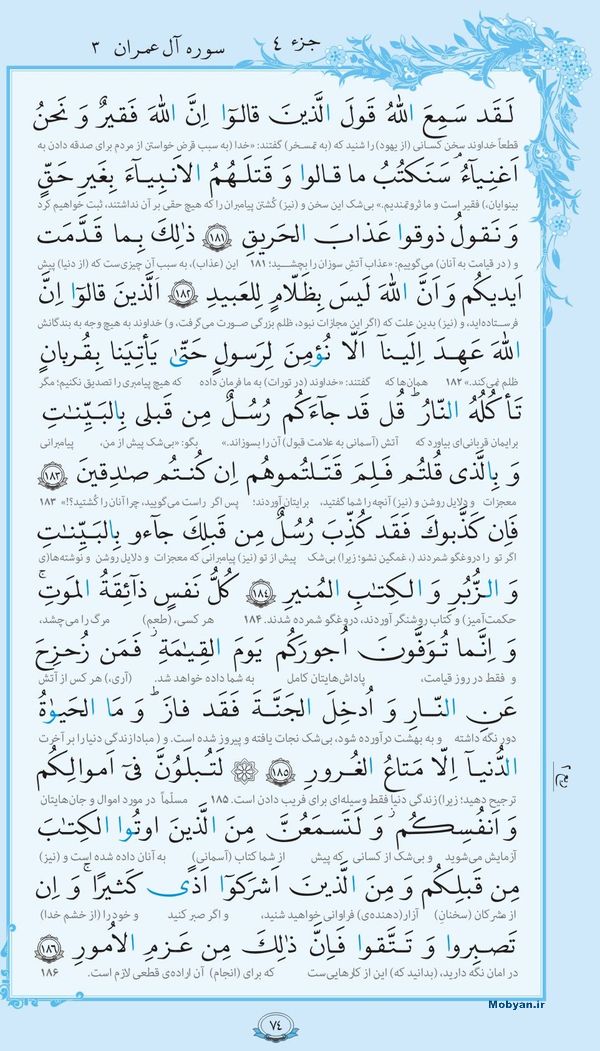 جزء ۴
سوره آل عمران ۳
لَـقَد سَـمِعَ اللهُ قَولَ الَّذینَ قالوٓا اِنَّ اللهَ فَقیرٌ وَ نَحنُ
قطعاً خداوند سخن کسانی (از یهود) را شنید که (به تمسخر) گفتند: «خدا (به سبب قرض خواستن از مردم برای صدقه دادن به
اَغنِیآءُ ۘ سَنَکتُبُ ما قالوا وَ قَتلَـهُمُ الاَنبِیآءَ بِغَیرِ حَقٍّ
بینوایان،) فقیر است و ما ثروتمندیم.» بی‌شک این سخن و (نیز) کُشتن پیامبران را که هیچ حقی بر آن نداشتند، ثبت خواهیم کرد
وَ نَقولُ ذوقوا عَذابَ الحَریقِ ﴿۱۸۱﴾ ذٰلِكَ بِما قَدَّمَت
و (در قیامت به آنان) می‌گوییم: «عذاب آتش سوزان را بچشید؛ ۱۸۱ این (عذاب)، به سبب آن چیزی‌ست که (از دنیا) پیش
اَیدیکُم وَ اَنَّ اللهَ لَیسَ بِظَلّامٍ لِلعَبیدِ ﴿۱۸۲﴾ اَلَّذینَ قالوٓا اِنَّ
فرستاده‌اید، و (نیز) بدین علت که (اگر این مجازات نبود، ظلم بزرگی صورت می‌گرفت، و) خداوند به هیچ وجه به بندگانش
اللهَ عَهِدَ اِلَینآ اَلّا نُؤمِنَ لِرَسولٍ حَتّیٰ یَأتِیَنا بِقُربانٍ
ظلم نمی‌کند.» ۱۸۲ همان‌ها که گفتند: «خداوند (در تورات) به ما فرمان داده که هیچ پیامبری را تصدیق نکنیم؛ مگر
تَأکُلُهُ النّارُ ۗ قُل قَد جآءَکُم رُسُلٌ مِن قَبلی بِالبَیِّنٰتِ
برایمان قربانی‌ای بیاورد که آتش (آسمانی به علامت قبول) آن را بسوزاند.» بگو: «بی‌شک پیش از من، پیامبرانی
وَ بِالَّذی قُلتُم فَلِمَ قَتَلتُموهُم اِن کُنتُم صٰدِقینَ ﴿۱۸۳﴾
معجزات و دلایل روشن و (نیز) آنچه را شما گفتید، برایتان آوردند؛ پس اگر راست می‌گویید، چرا آنان را کُشتید؟!» ۱۸۳
فَاِن کَذَّبوكَ فَقَد کُذِّبَ رُسُلٌ مِن قَبلِكَ جآءو بِالبَیِّنٰتِ
اگر تو را دروغگو شمردند (، غمگین نشو؛ زیرا) بی‌شک پیش از تو (نیز) پیامبرانی که معجزات و دلایل روشن و نوشته‌ها(ی
وَ الزُّبُرِ وَ الکِتٰبِ المُنیرِ ﴿۱۸۴﴾ کُلُّ نَفسٍ ذآئِقَةُ المَوتِ ۗ
حکمت‌آمیز) و کتاب روشنگر آوردند، دروغگو شمرده شدند. ۱۸۴ هر کسی، (طعم) مرگ را می‌چشد،
وَ اِنَّما تُوَفَّونَ اُجورَکُم یَومَ القِیٰمَةِ ۖ فَمَن زُحزِحَ
و فقط در روز قیامت، پاداش‌هایتان کامل به شما داده خواهد شد. (آری،) هر کس از آتش
عَنِ النّارِ وَ اُدخِلَ الجَنَّةَ فَقَد فازَ ۗ وَ مَا الحَیوٰةُ
دور نگه داشته و به بهشت درآورده شود، بی‌شک نجات یافته و پیروز شده است. و (مبادا زندگی دنیا را بر آخرت
الدُّنیآ اِلّا مَتاعُ الغُرورِ ﴿۱۸۵﴾ لَتُبلَوُنَّ فی اَموالِکُم
ترجیح دهید؛ زیرا) زندگی دنیا فقط وسیله‌ای برای فریب دادن است. ۱۸۵ مسلّماً در مورد اموال و جان‌هایتان
وَ اَنفُسِکُم وَ لَتَسمَعُنَّ مِنَ الَّذینَ اوتُوا الکِتٰبَ
آزمایش می‌شوید و بی‌شک از کسانی که پیش از شما کتاب (آسمانی) به آنان داده شده است و (نیز)
مِن قَبلِکُم وَ مِنَ الَّذینَ اَشرَکوٓا اَذًی کَثیرًا ۚ وَ اِن
از مشرکان (سخنانِ) آزار(دهنده‌ی) فراوانی خواهید شنید، و اگر صبر کنید و خود را (از خشم خدا)
تَصبِروا وَ تَتَّقوا فَاِنَّ ذٰلِكَ مِن عَزمِ الاُمورِ ﴿۱۸۶﴾
در امان نگه دارید، (بدانید که) این از کارهایی‌ست که برای (انجام) آن اراده‌ی قطعی لازم است. ۱۸۶
Mobyan.ir
۷۴